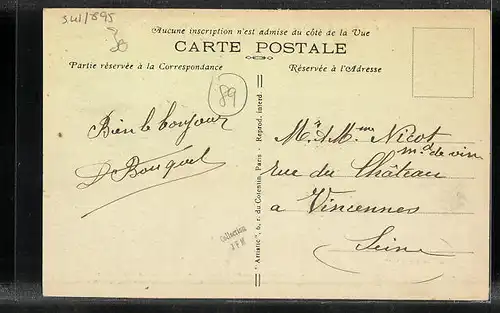 SUI/895
30
Aucune inscription n'est admise du côté de la Vue
CARTE POSTALE
Partie réservée à la Correspondance
Réservée à l'Adresse
89
Bien le bonjour
D Bouquet
Mr & Mme Nicot
md de vin
rue du Château
a Vincennes
Seine
Collection
J F M
"Artistic" 6, r. du Cotentin, Paris - Reprod. interd.